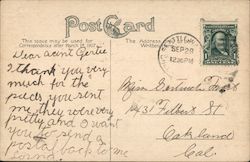 Post Card
This space may be used for
Correspondence after March 1st, 1907
The Address
Written
SEP 28
12:30 PM
Dear Aunt Gertie
I thank you very
much for the
pieces you sent
me. They were very
pretty and I want
you to send a
postal back to me
Miss Gertrude
Oakland
Cal.